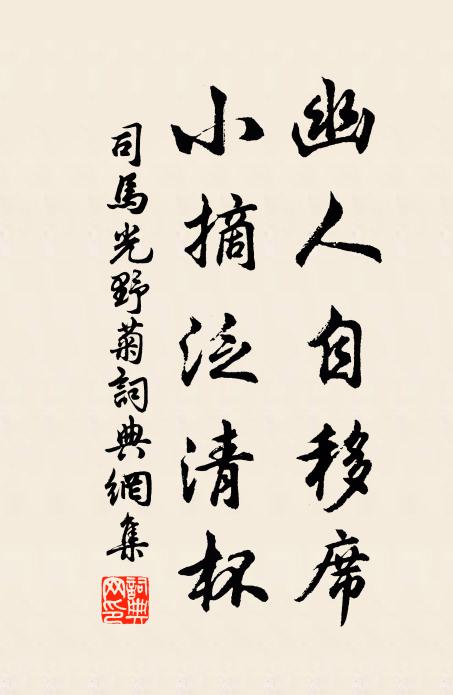 幽人自移席
小摘泛清杯
司馬光野菊詞典網集
詞典網印